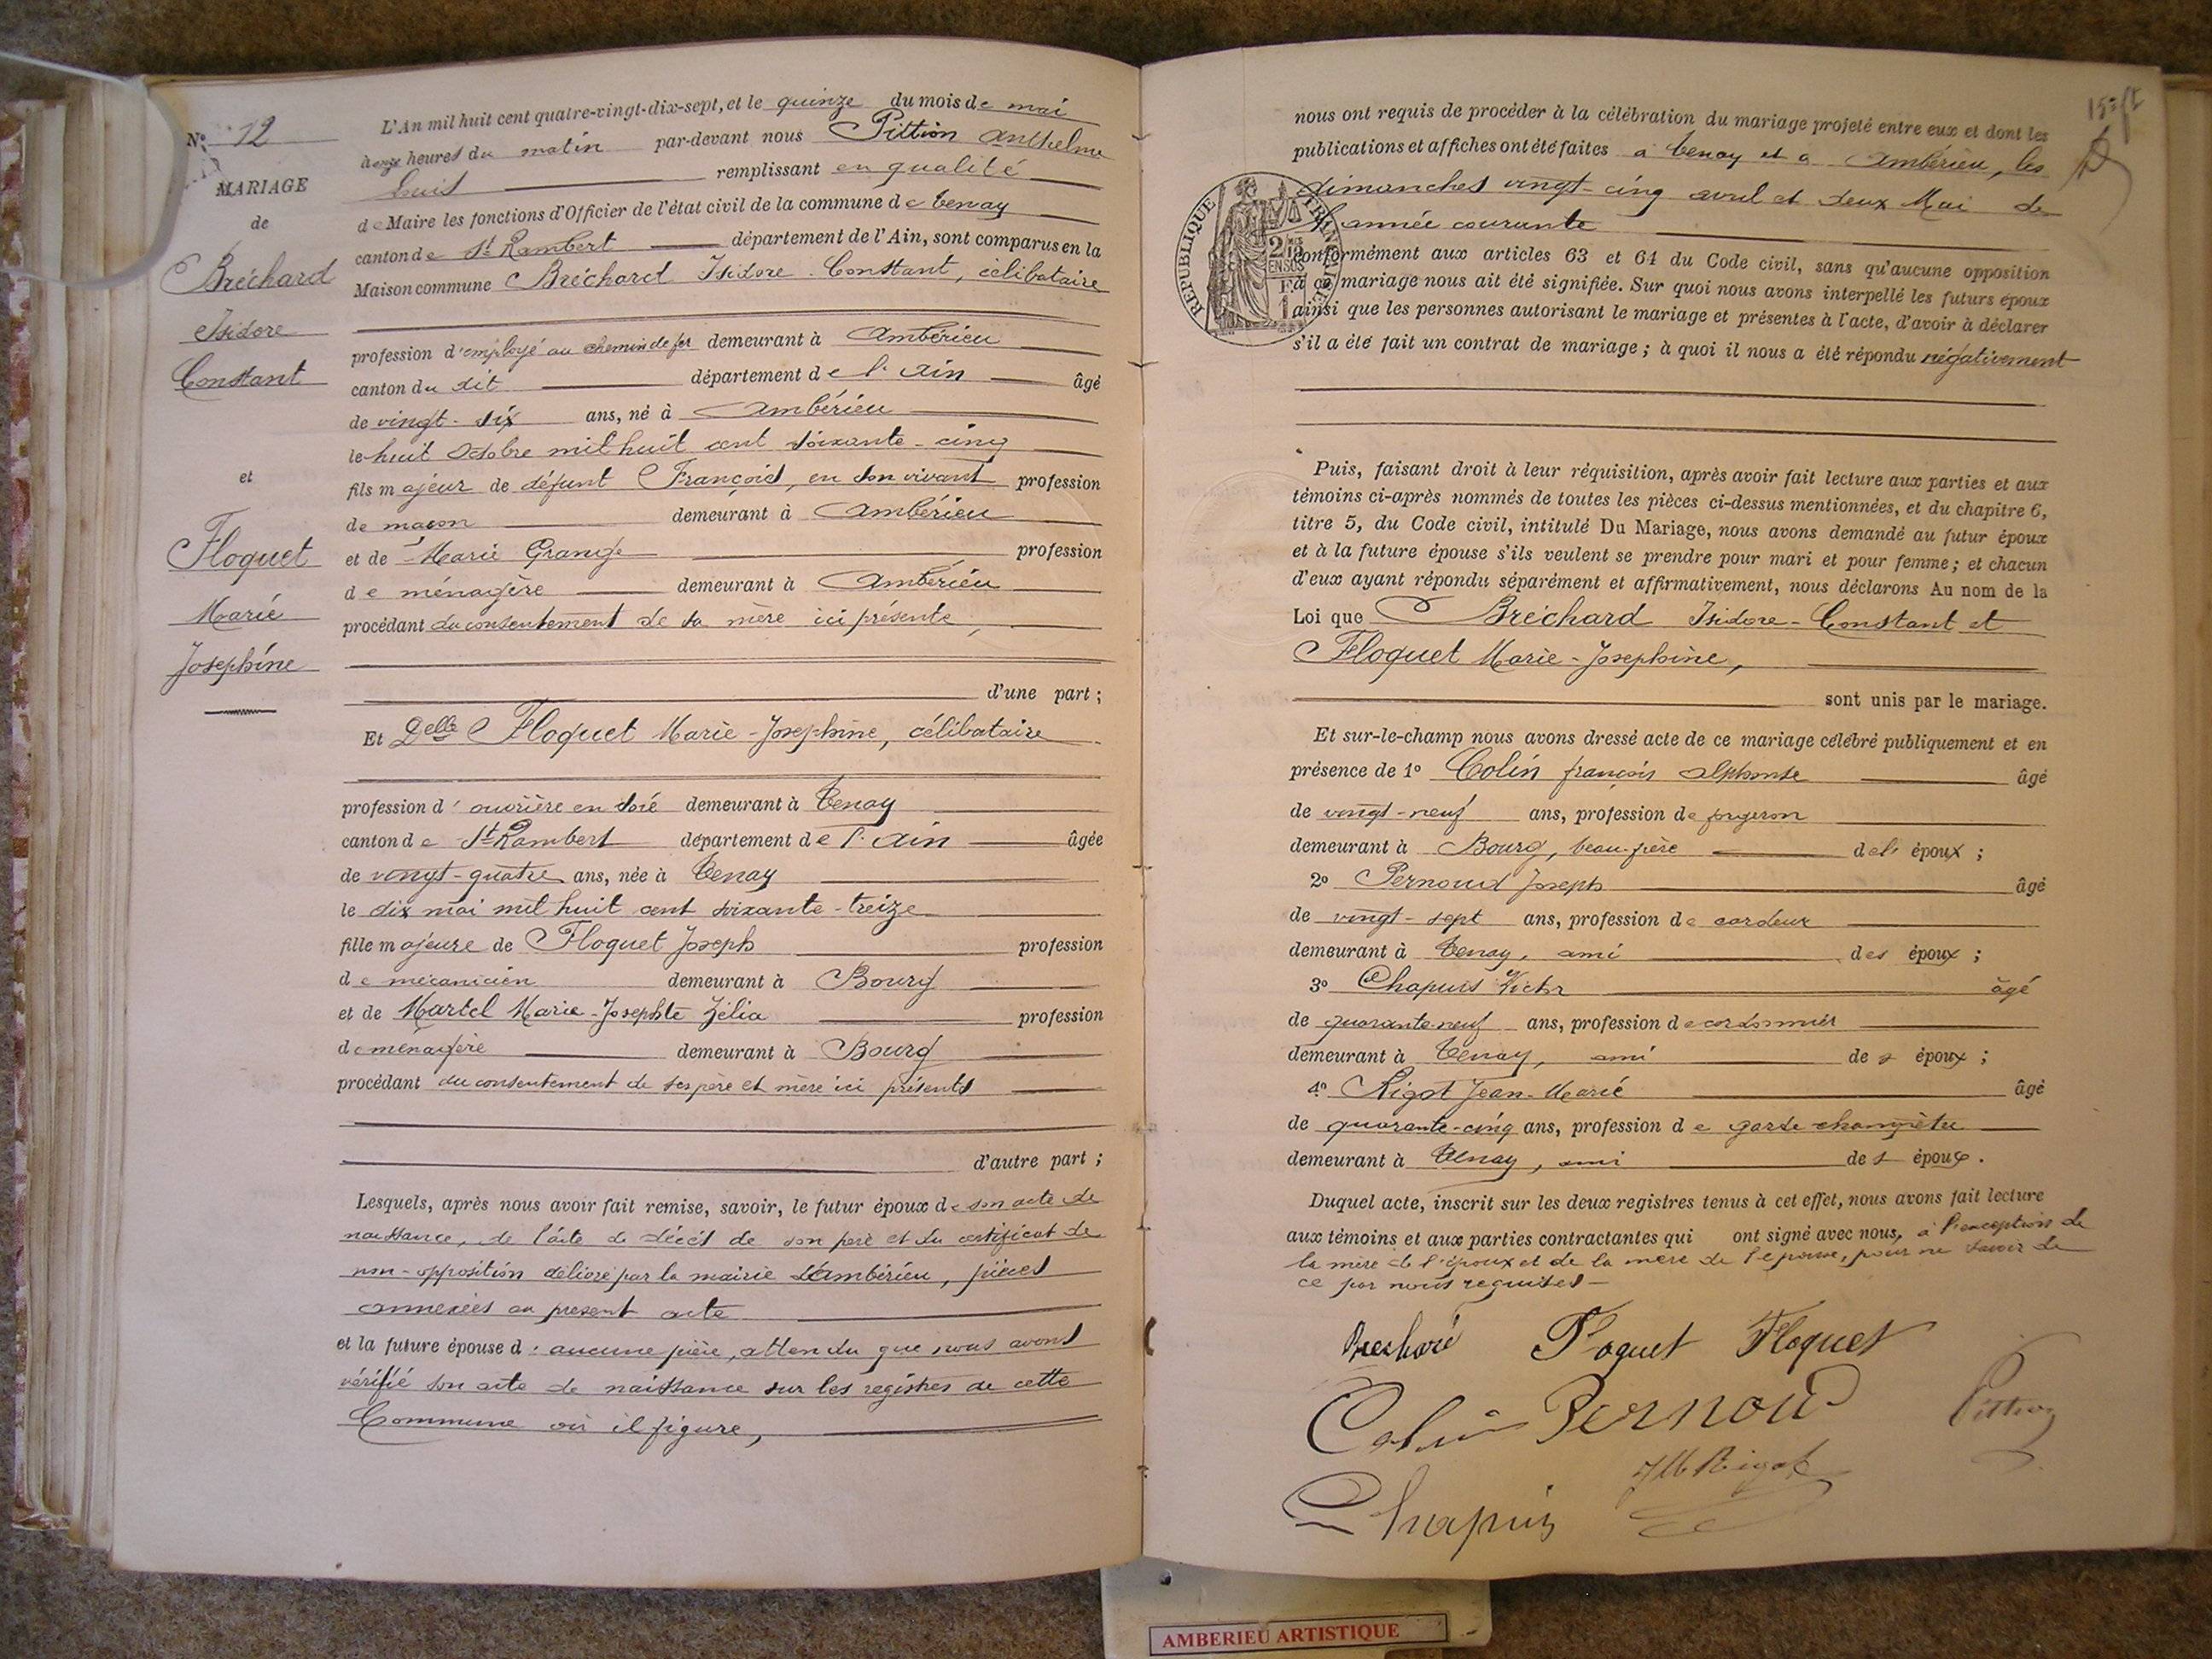 N° 12
MARIAGE
de
Bréchard
Isidore
Constant
et
Floquet
Marie
Josephine
L'An mil huit cent quatre-vingt-dix-sept, et le quinze du mois de mai
à onze heures du matin par-devant nous Pittion Anthelme
Louis remplissant en qualité
de Maire les fonctions d'Officier de l'état civil de la commune de Tenay
canton de St Rambert département de l'Ain, sont comparus en la
Maison commune Bréchard Isidore Constant, célibataire
profession d'employé au chemin de fer demeurant à Ambérieu
canton du dit département de l'Ain âgé
de vingt-six ans, né à Ambérieu
le huit Octobre mil huit cent soixante-cinq
fils majeur de défunt François, en son vivant profession
de maçon demeurant à Ambérieu
et de Marie Grange profession
de ménagère demeurant à Ambérieu
procédant du consentement de sa mère ici présente,
d'une part ;
Et Delle Floquet Marie-Josephine, célibataire
profession d'ouvrière en soie demeurant à Tenay
canton de St Rambert département de l'Ain âgée
de vingt-quatre ans, née à Tenay
le dix mai mil huit cent soixante-treize
fille majeure de Floquet Joseph profession
de mécanicien demeurant à Bourg
et de Martel Marie-Josephte Zélia profession
de ménagère demeurant à Bourg
procédant du consentement de ses père et mère ici présents
d'autre part ;
Lesquels, après nous avoir fait remise, savoir, le futur époux de son acte de
naissance, de l'acte de décès de son père et du certificat de
non-opposition délivré par la mairie d'Ambérieu, pièces
annexées au présent acte
et la future épouse d'aucune pièce, attendu que nous avons
vérifié son acte de naissance sur les registres de cette
Commune où il figure,
nous ont requis de procéder à la célébration du mariage projeté entre eux et dont les
publications et affiches ont été faites à Tenay et à Ambérieu, les
dimanches vingt-cinq avril et deux Mai de
l'année courante
conformément aux articles 63 et 64 du Code civil, sans qu'aucune opposition
à ce mariage nous ait été signifiée. Sur quoi nous avons interpellé les futurs époux
ainsi que les personnes autorisant le mariage et présentes à l'acte, d'avoir à déclarer
s'il a été fait un contrat de mariage ; à quoi il nous a été répondu négativement
REPUBLIQUE
Puis, faisant droit à leur réquisition, après avoir fait lecture aux parties et aux
témoins ci-après nommés de toutes les pièces ci-dessus mentionnées, et du chapitre 6,
titre 5, du Code civil, intitulé Du Mariage, nous avons demandé au futur époux
et à la future épouse s'ils veulent se prendre pour mari et pour femme ; et chacun
d'eux ayant répondu séparément et affirmativement, nous déclarons Au nom de la
Loi que Bréchard Isidore-Constant et
Floquet Marie-Josephine,
sont unis par le mariage.
Et sur-le-champ nous avons dressé acte de ce mariage célébré publiquement et en
présence de 1° Colin françois alphonse âgé
de vingt-neuf ans, profession de forgeron
demeurant à Bourg, beau-frère de l'époux ;
2° Pernoud Joseph âgé
de vingt-sept ans, profession de cardeur
demeurant à Tenay, ami des époux ;
3° Chapuis Victor âgé
de quarante-neuf ans, profession de cordonnier
demeurant à Tenay, ami des époux ;
4° Rigot Jean-Marie âgé
de quarante-cinq ans, profession de garde champêtre
demeurant à Tenay, ami des époux.
Duquel acte, inscrit sur les deux registres tenus à cet effet, nous avons fait lecture
aux témoins et aux parties contractantes qui ont signé avec nous, à l'exception de
la mère de l'époux et de la mère de l'épouse, pour ne savoir de
ce par nous requises
Brechard Floquet Floquet
Colin Pernoud Pittion
JM Rigot
Chapuis
AMBERIEU ARTISTIQUE